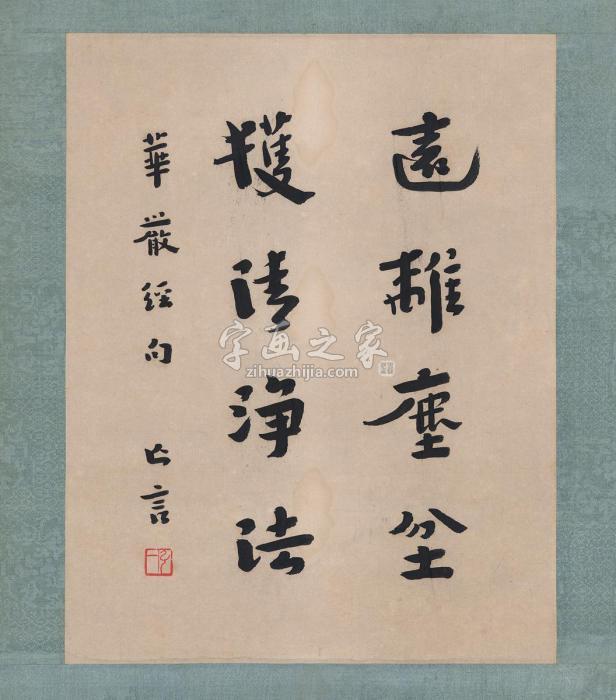 遠離塵坌
獲清淨法
華嚴經句 亡言
字画之家
zihuazhijia.com